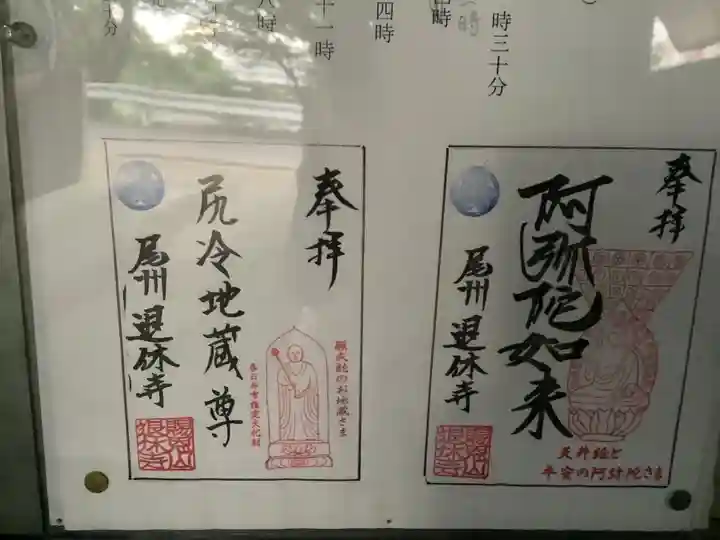 時三十分
四時
十一時
八時
十分
奉拝
阿弥陀如来
尾州退休寺
天井絵と
平安の阿弥陀さま
奉拝
尻冷地蔵尊
尾州退休寺
春日井市指定文化財